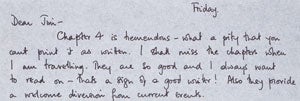 Friday
Dear Jim -
Chapter 4 is tremendous - what a pity that you
cant print it as written. I shall miss the chapters when
I am travelling. They are so good and I always want
to read on - thats a sign of a good writer! Also they provide
a welcome diversion from current events.